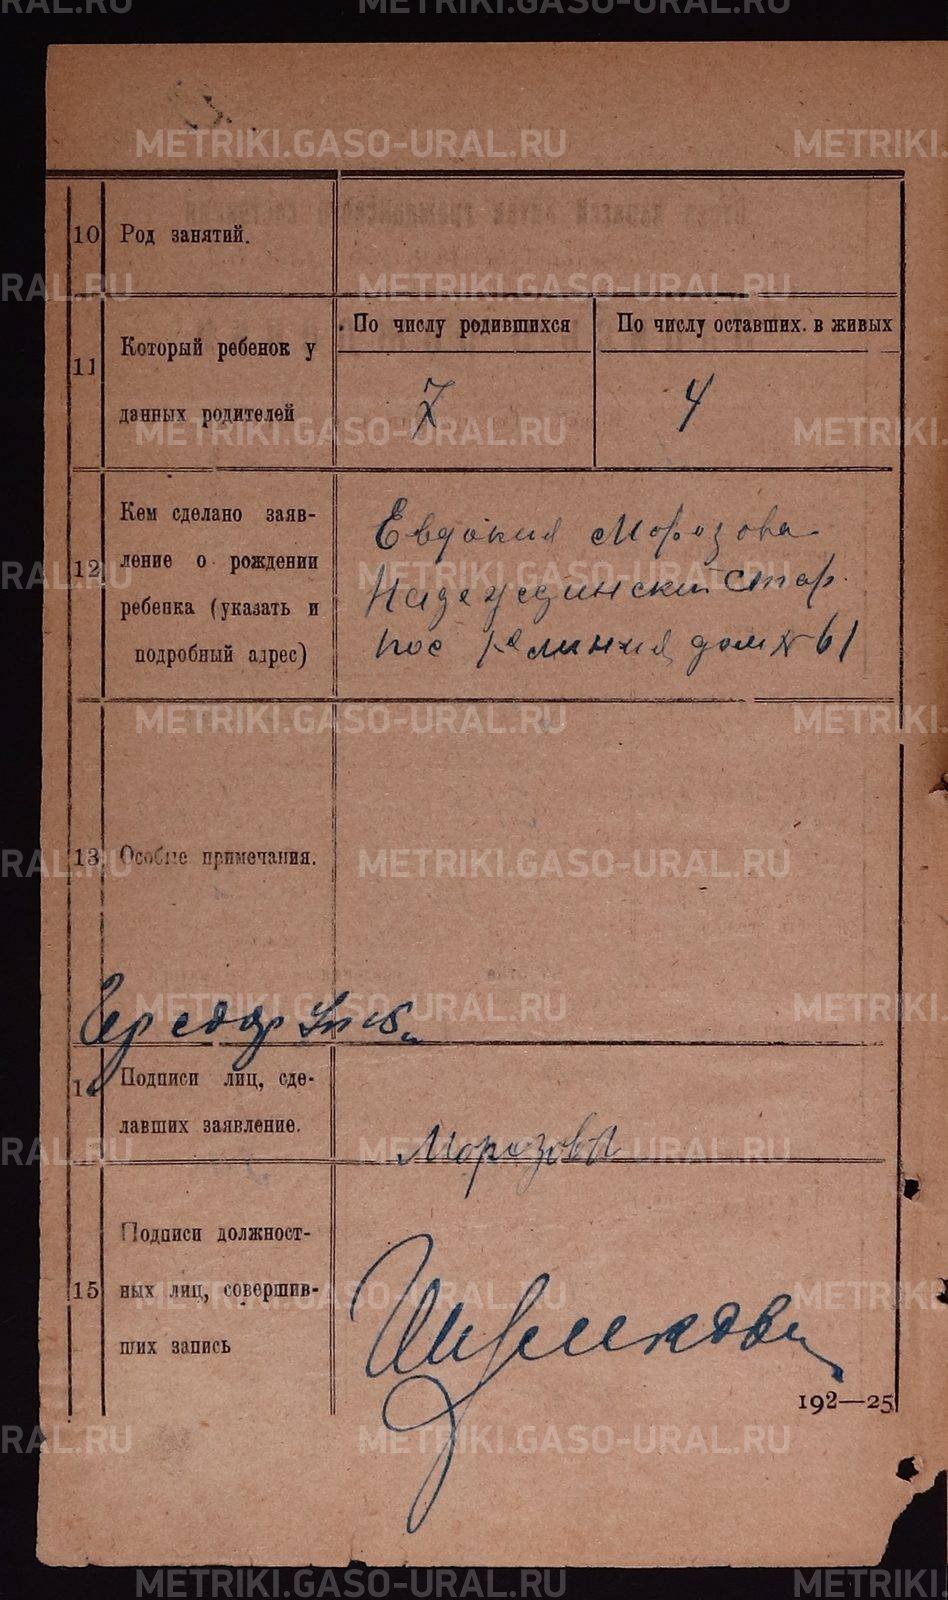 METRIKI.GASO-URAL.RU
10 Род занятий.
11 Который ребенок у
данных родителей
По числу родившихся
По числу оставших. в живых
7
4
12 Кем сделано заяв-
ление о рождении
ребенка (указать и
подробный адрес)
Евдокия Морозова
Надеждинский стар.
пос линия дом № 61
13 Особые примечания.
14 Подписи лиц, сде-
лавших заявление.
Морозова
15 Подписи должност-
ных лиц, совершив-
ших запись
192—25